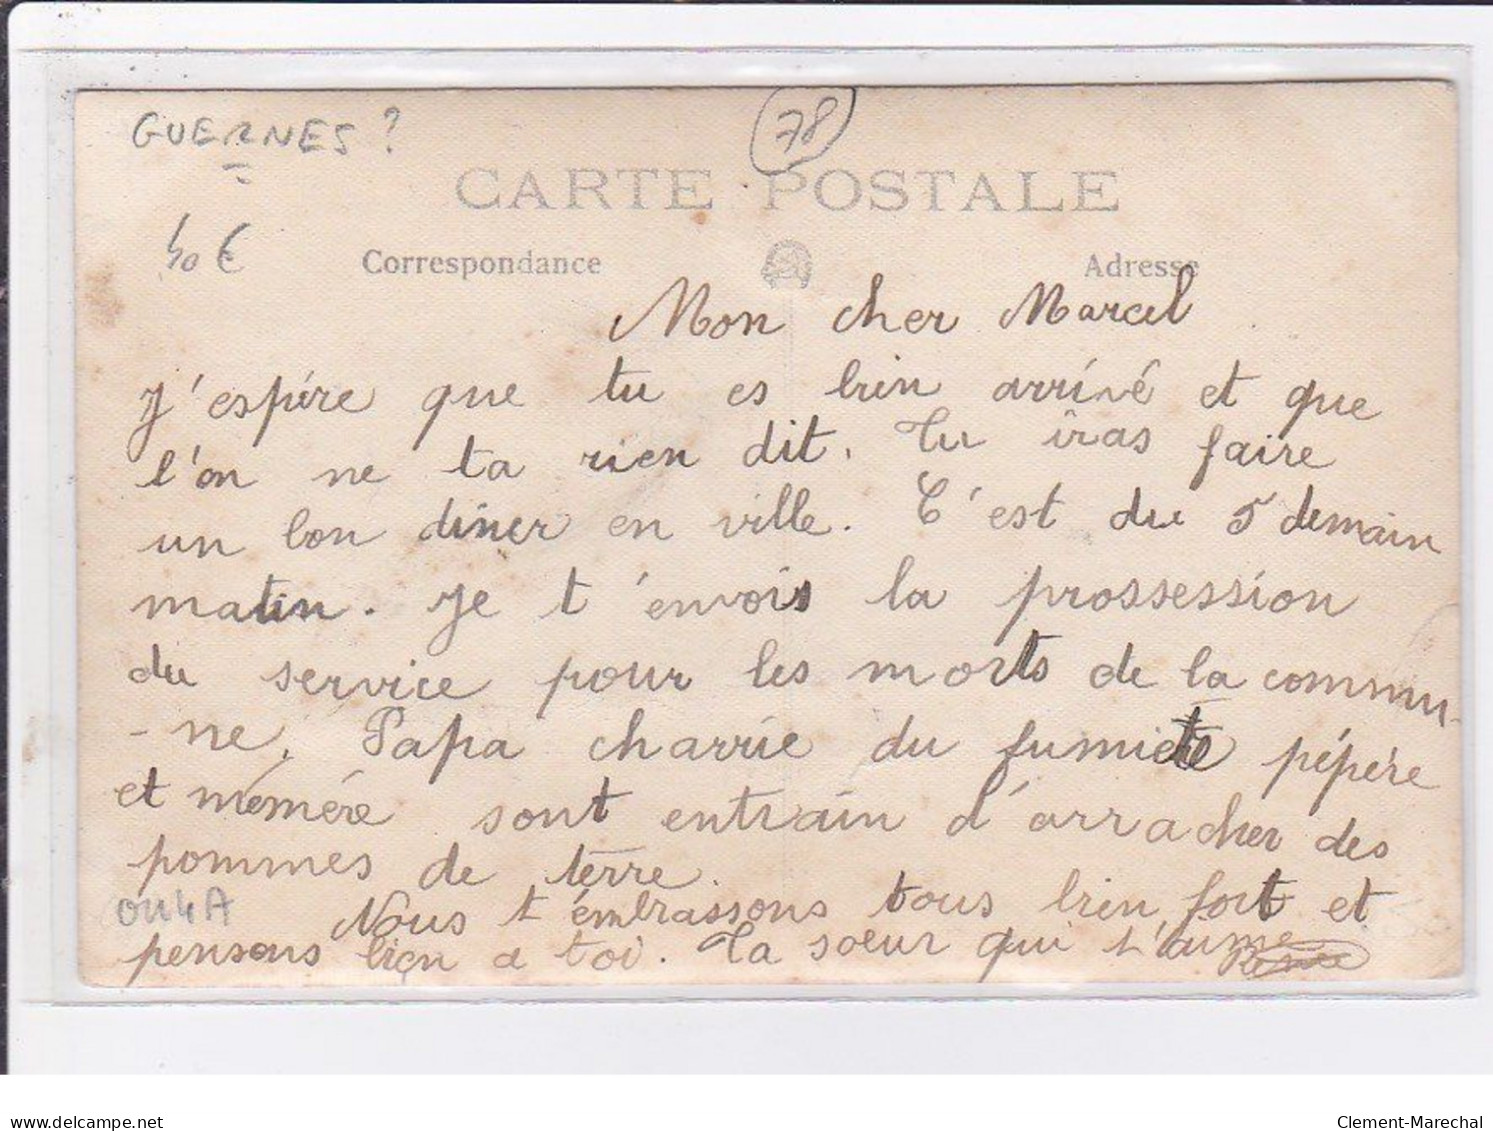 GUERNES ?
78
CARTE POSTALE
40 €
Correspondance
Adresse
Mon cher Marcel
J'espére que tu es bien arrivé et que
l'on ne ta rien dit. Tu iras faire
un bon diner en ville. C'est du 5 demain
matin. Je t'envois la prossession
du service pour les morts de la commu-
-ne. Papa charrie du fumier pépère
et mémére sont entrain d'arracher des
pommes de terre.
Nous t'embrassons tous bien fort et
pensons bien a toi. Ta soeur qui t'aime
0114A
delcampe.net
Clement-Marechal